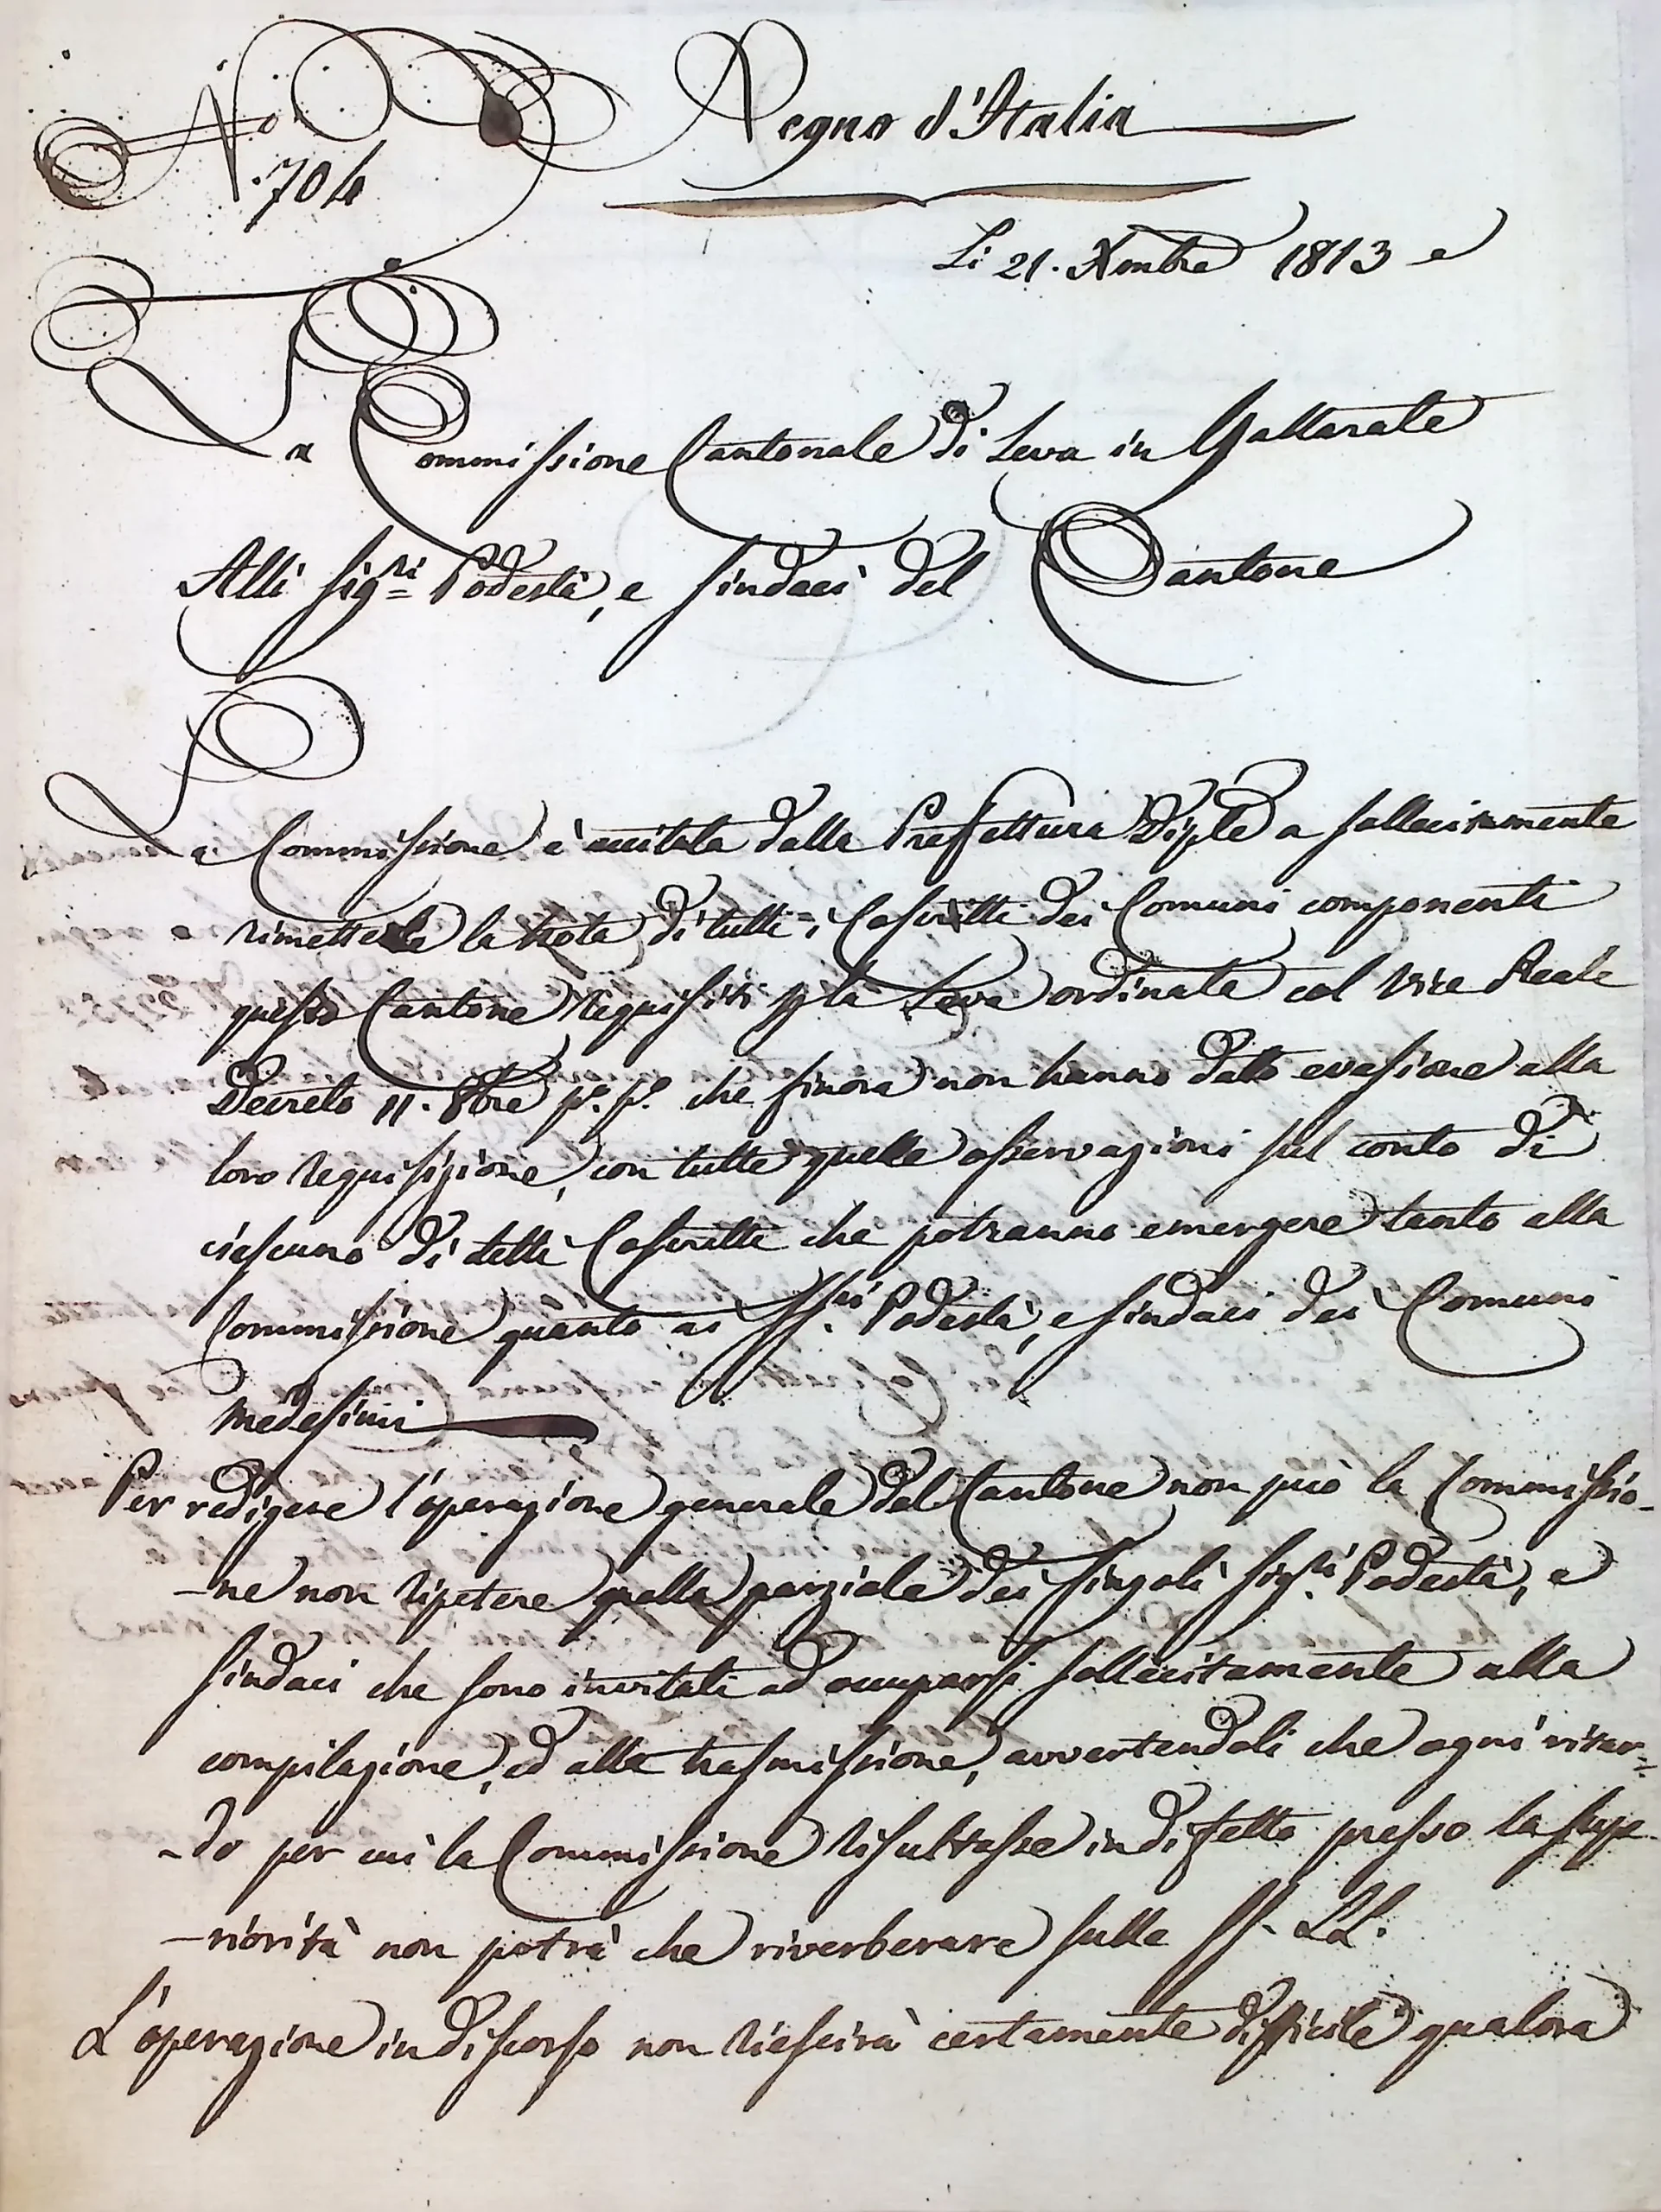 N.o
704
Regno d'Italia
Li 21. Xmbre 1813
La Commissione Cantonale di Leva in Gallarate
Alli Sig.ri Podestà, e Sindaci del Cantone
La Commissione è eccitata dalla Prefettura Diple a sollecitamente
rimetterle la Nota di tutti i Coscritti dei Comuni componenti
questo Cantone requisiti p la Leva ordinata col Vice Reale
Decreto 11. 8bre p.o p.o che finora non hanno dato evasione alla
loro requisizione, con tutte quelle osservazioni sul conto di
ciascuno di detti Coscritti che potranno emergere tanto alla
Commissione quanto ai SS.ri Podestà, e Sindaci dei Comuni
medesimi
Per redigere l'operazione generale del Cantone non può la Commissio-
-ne non ripetere quella parziale dei singoli Sig.ri Podestà, e
Sindaci che sono invitati ad occuparsi sollecitamente alla
compilazione, ed alla trasmissione, avvertendoli che ogni ritar=
-do per cui la Commissione risultasse in difetto presso la Supe-
-riorità non potrà che riverberare sulle SS. LL.
L'operazione in discorso non riescirà certamente difficile qualora